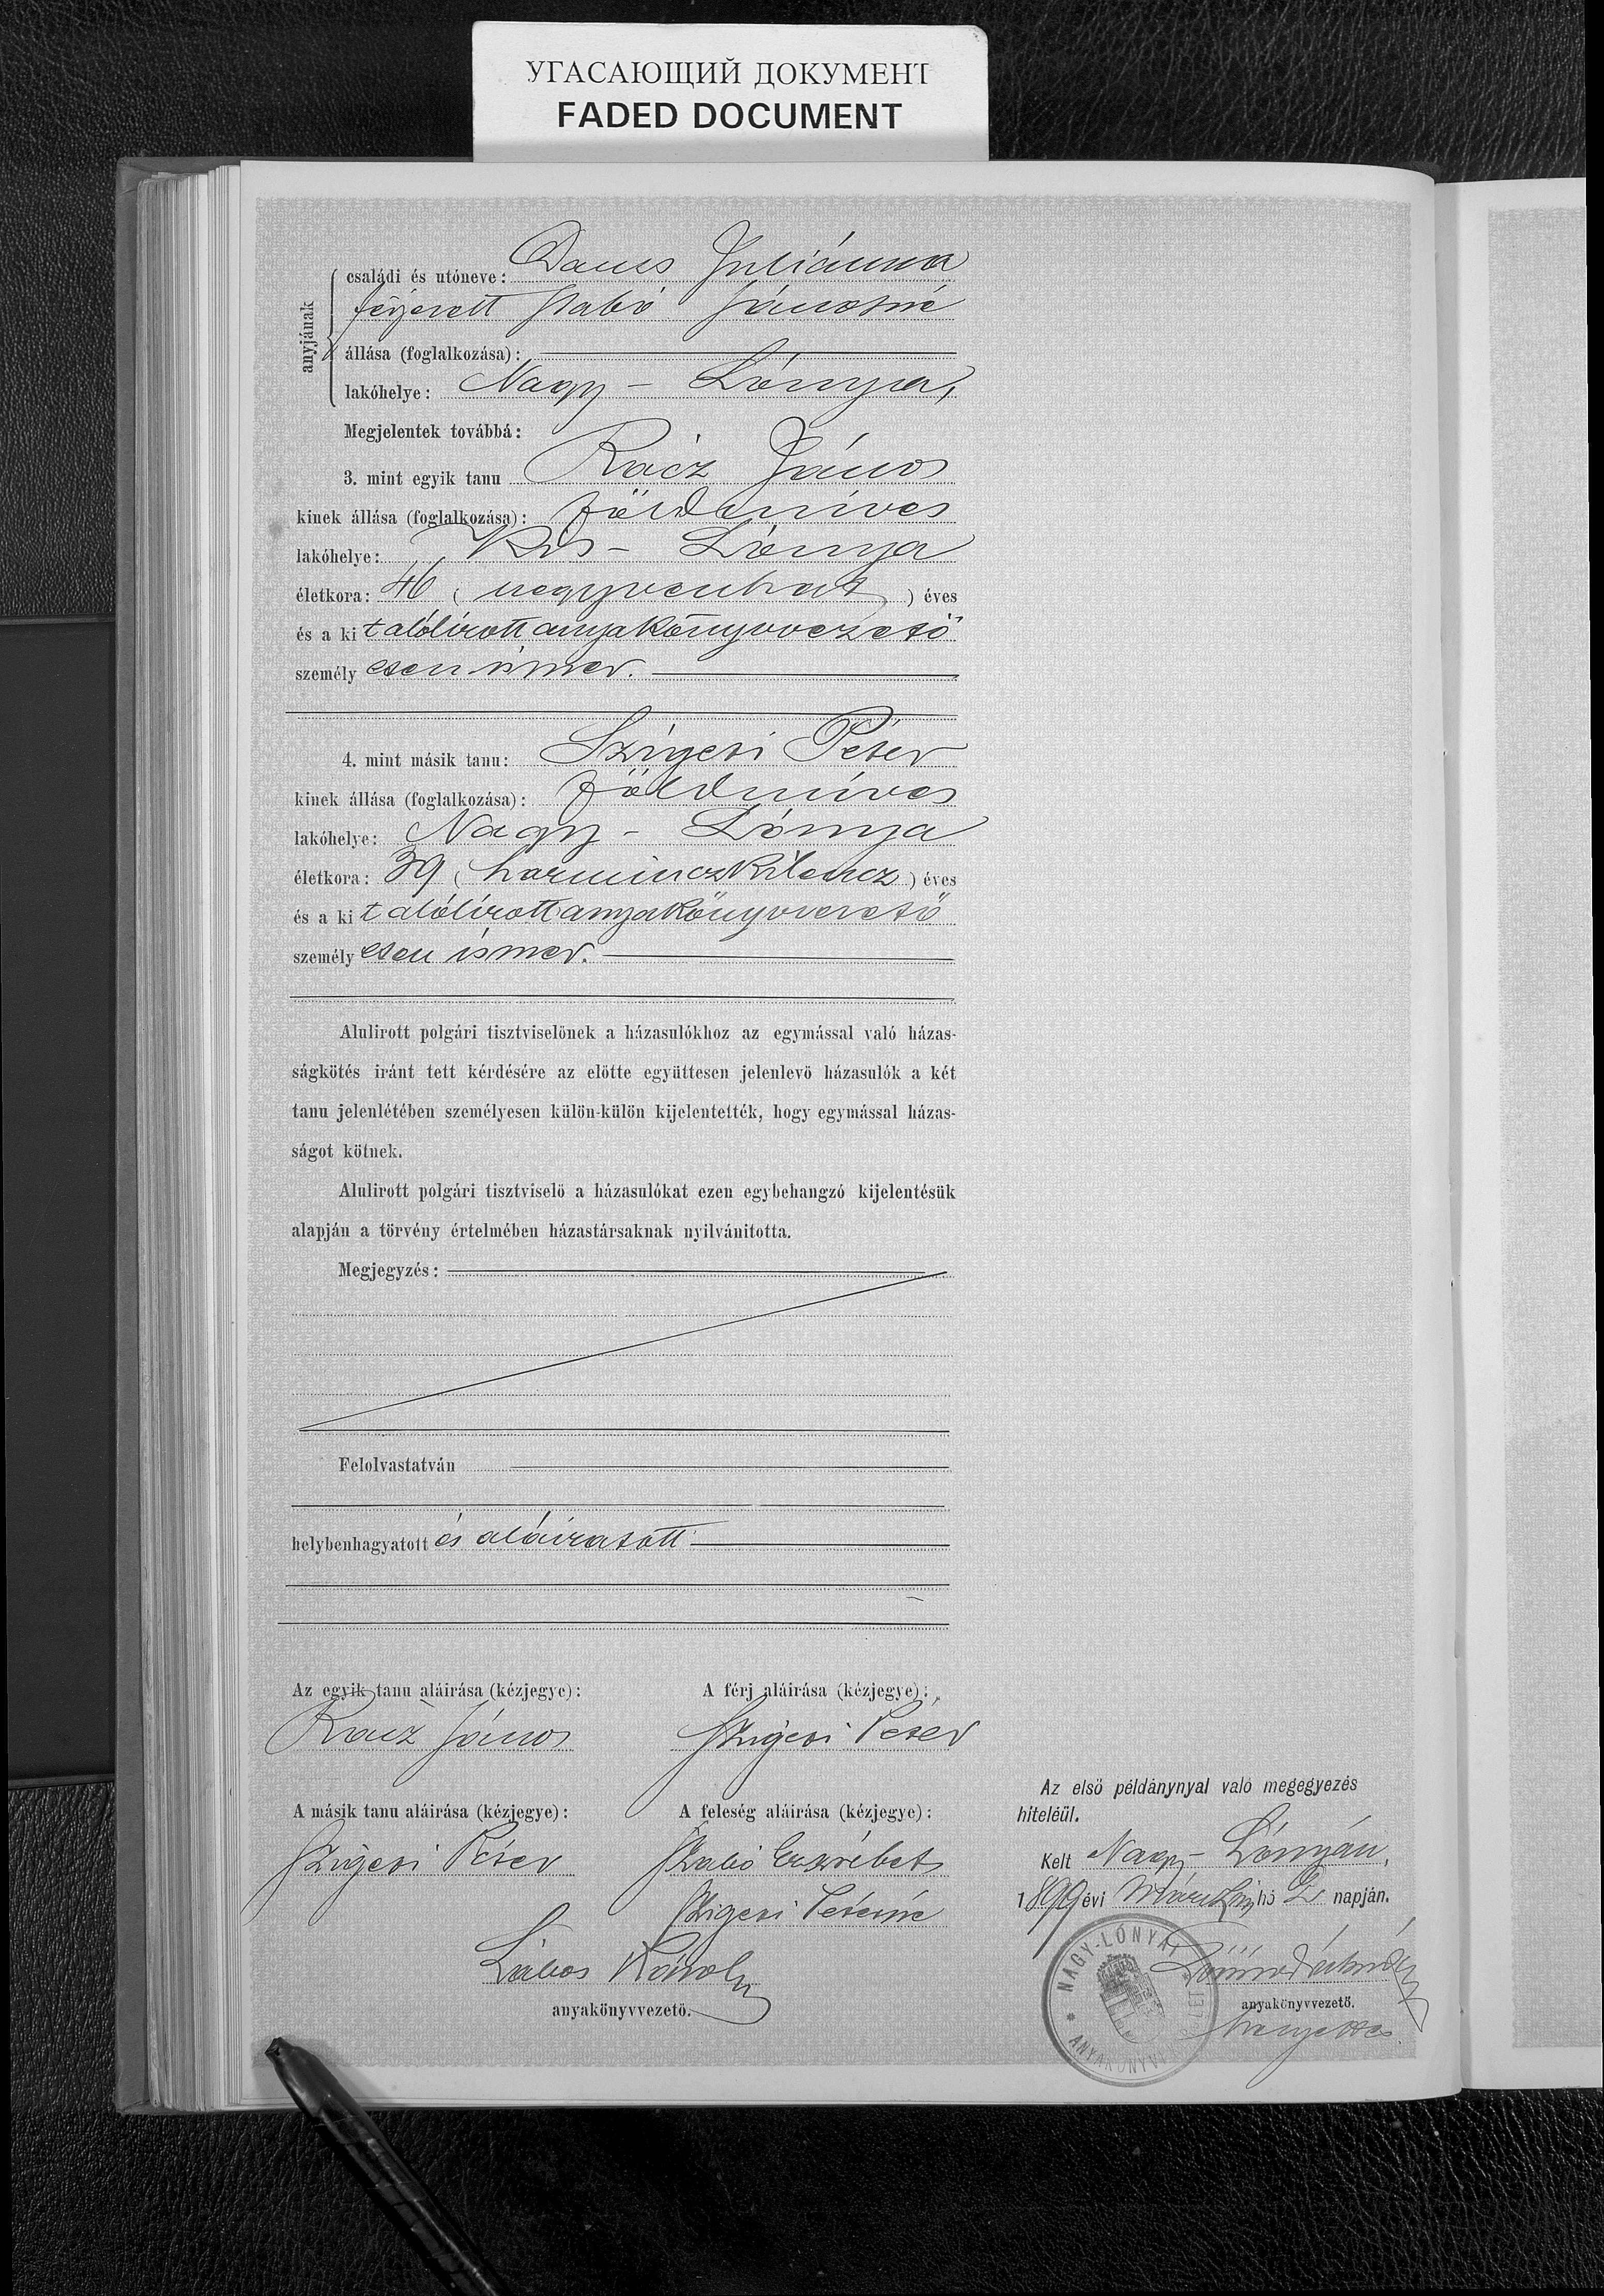 УГАСАЮЩИЙ ДОКУМЕНТ
FADED DOCUMENT
anyjának
családi és utóneve: Dancs Juliánna
férjezett Szabó Jánosné
állása (foglalkozása):
lakóhelye: Nagy - Lónya,
Megjelentek továbbá:
3. mint egyik tanu Rácz János
kinek állása (foglalkozása): földmíves
lakóhelye: Kis - Lónya
életkora: 46 (negyvenhat) éves
és a ki t alólírott anyakönyvvezető
személy esen ismer.
4. mint másik tanu: Szigeti Péter
kinek állása (foglalkozása): földmíves
lakóhelye: Nagy - Lónya
életkora: 39 (harminczkilencz) éves
és a ki t alólírott anyakönyvvezető
személy esen ismer.
Alulirott polgári tisztviselönek a házasulókhoz az egymással való házas-
ságkötés iránt tett kérdésére az elötte együttesen jelenlevö házasulók a két
tanu jelenlétében személyesen külön-külön kijelentették, hogy egymással házas-
ságot kötnek.
Alulirott polgári tisztviselö a házasulókat ezen egybehangzó kijelentésük
alapján a törvény értelmében házastársaknak nyilvánitotta.
Megjegyzés:
Felolvastatván
helybenhagyatott és aláiratott
Az egyik tanu aláirása (kézjegye): A férj aláirása (kézjegye):
Rácz János Szigeti Péter
A másik tanu aláirása (kézjegye): A feleség aláirása (kézjegye):
Szigeti Péter Szabó Erzsébet
Szigeti Péterné
Károly
anyakönyvvezetö.
Az elsö példánynyal való megegyezés
hiteléül.
Kelt Nagy - Lónyán,
1899 évi Márczius hó 2 napján.
NAGY-LÓNYAI
ANYAKÖNYVI
anyakönyvvezetö.
helyettes